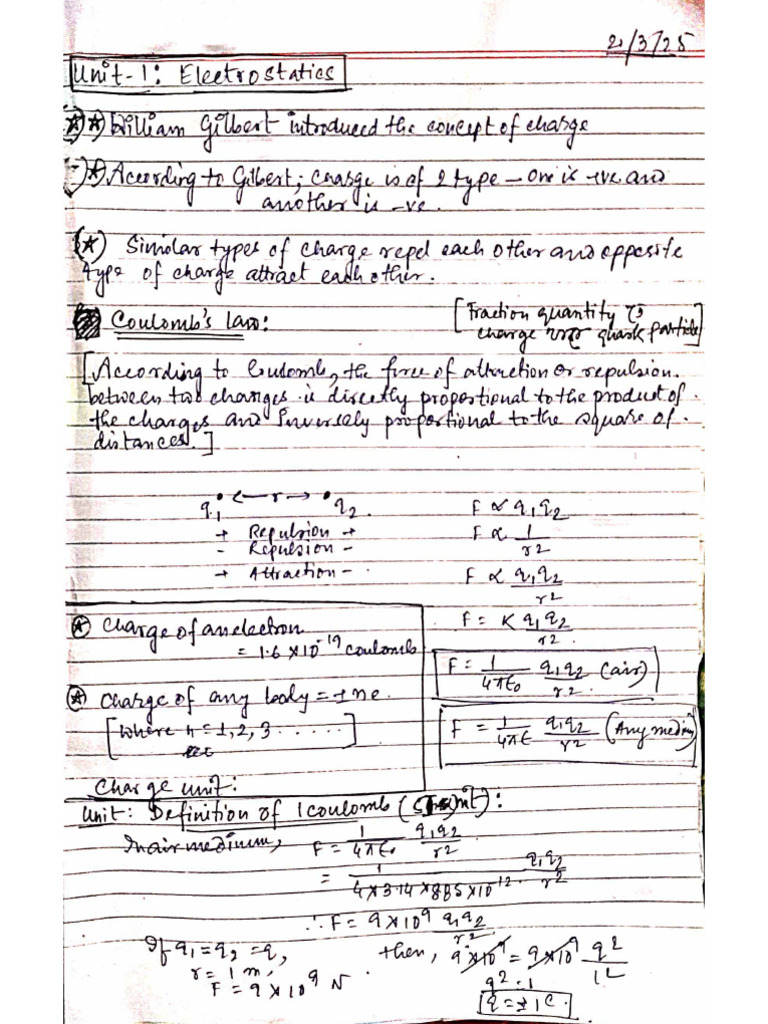 2/3/25
Unit-1: Electrostatics
William Gilbert introduced the concept of charge
According to Gilbert; charge is of 2 type – one is +ve and
another is -ve.
Similar types of charge repel each other and opposite
type of charge attract each other.
Coulomb's law:
[Fraction quantity
charge quark particle]
[According to Coulomb, the force of attraction or repulsion.
between two charges is directly proportional to the product of
the charges and Inversely proportional to the square of
distances.]
q₁ •<— r —>• q₂
+ Repulsion +
- Repulsion -
+ Attraction -
F ∝ q₁q₂
F ∝ 1/r²
F ∝ q₁q₂/r²
F = K q₁q₂/r²
F = 1/4πε₀ q₁q₂/r² (air)
F = 1/4πε q₁q₂/r² (Any medium)
Charge of an electron
= 1.6 × 10⁻¹⁹ coulomb
Charge of any body = ± ne.
[Where n = 1, 2, 3 ......]
Charge unit:
Unit: Definition of 1 coulomb
In air medium, F = 1/4πε₀ q₁q₂/r²
= 1/4×3.14×8.85×10⁻¹² q₁q₂/r²
∴ F = 9×10⁹ q₁q₂/r²
If q₁ = q₂ = q,
r = 1 m,
F = 9×10⁹ N
then, 9×10⁹ = 9×10⁹ q²/1²
q² = 1
q = ± 1 C.